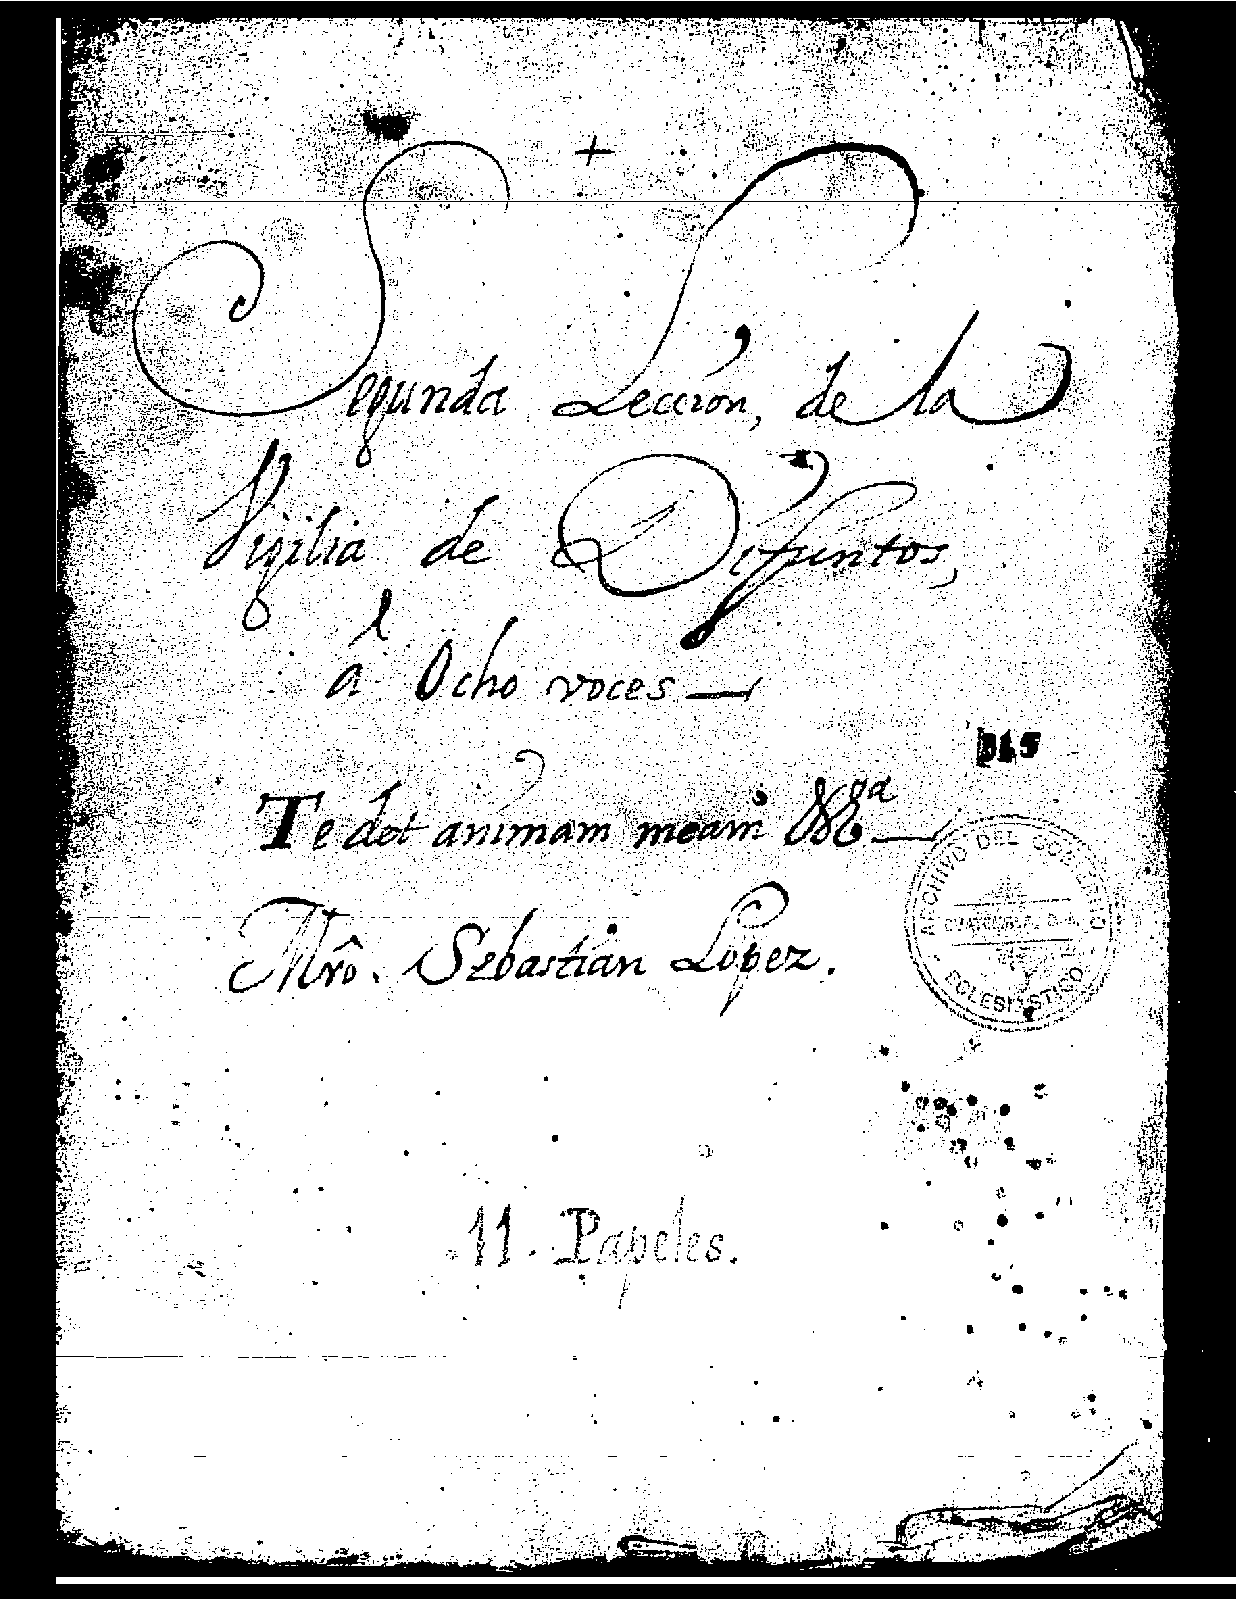 +
Segunda Leccion, de la
Vigilia de Difuntos,
â Ocho voces
315
Tedet animam meam &ª
Mrô. Sebastian Lopez.
ARCHIVO DEL GOBIERNO
ECLESIASTICO
11. Papeles.